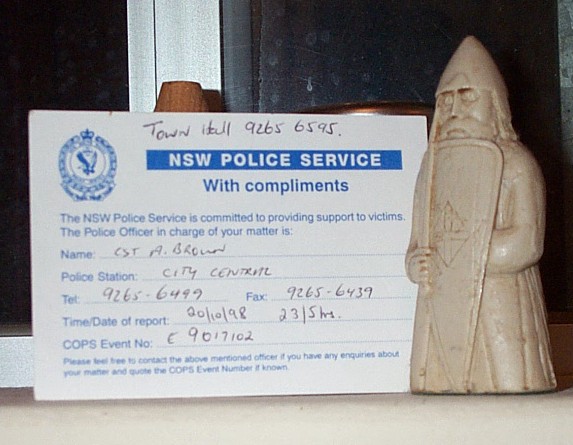 Town Hall 9265 6595.
NSW POLICE SERVICE
With compliments
The NSW Police Service is committed to providing support to victims.
The Police Officer in charge of your matter is:
Name: CST A. BROWN
Police Station: CITY CENTRAL
Tel: 9265-6499 Fax: 9265-6439
Time/Date of report: 20/10/98 2315hrs.
COPS Event No: E 9017102
Please feel free to contact the above mentioned officer if you have any enquiries about
your matter and quote the COPS Event Number if known.